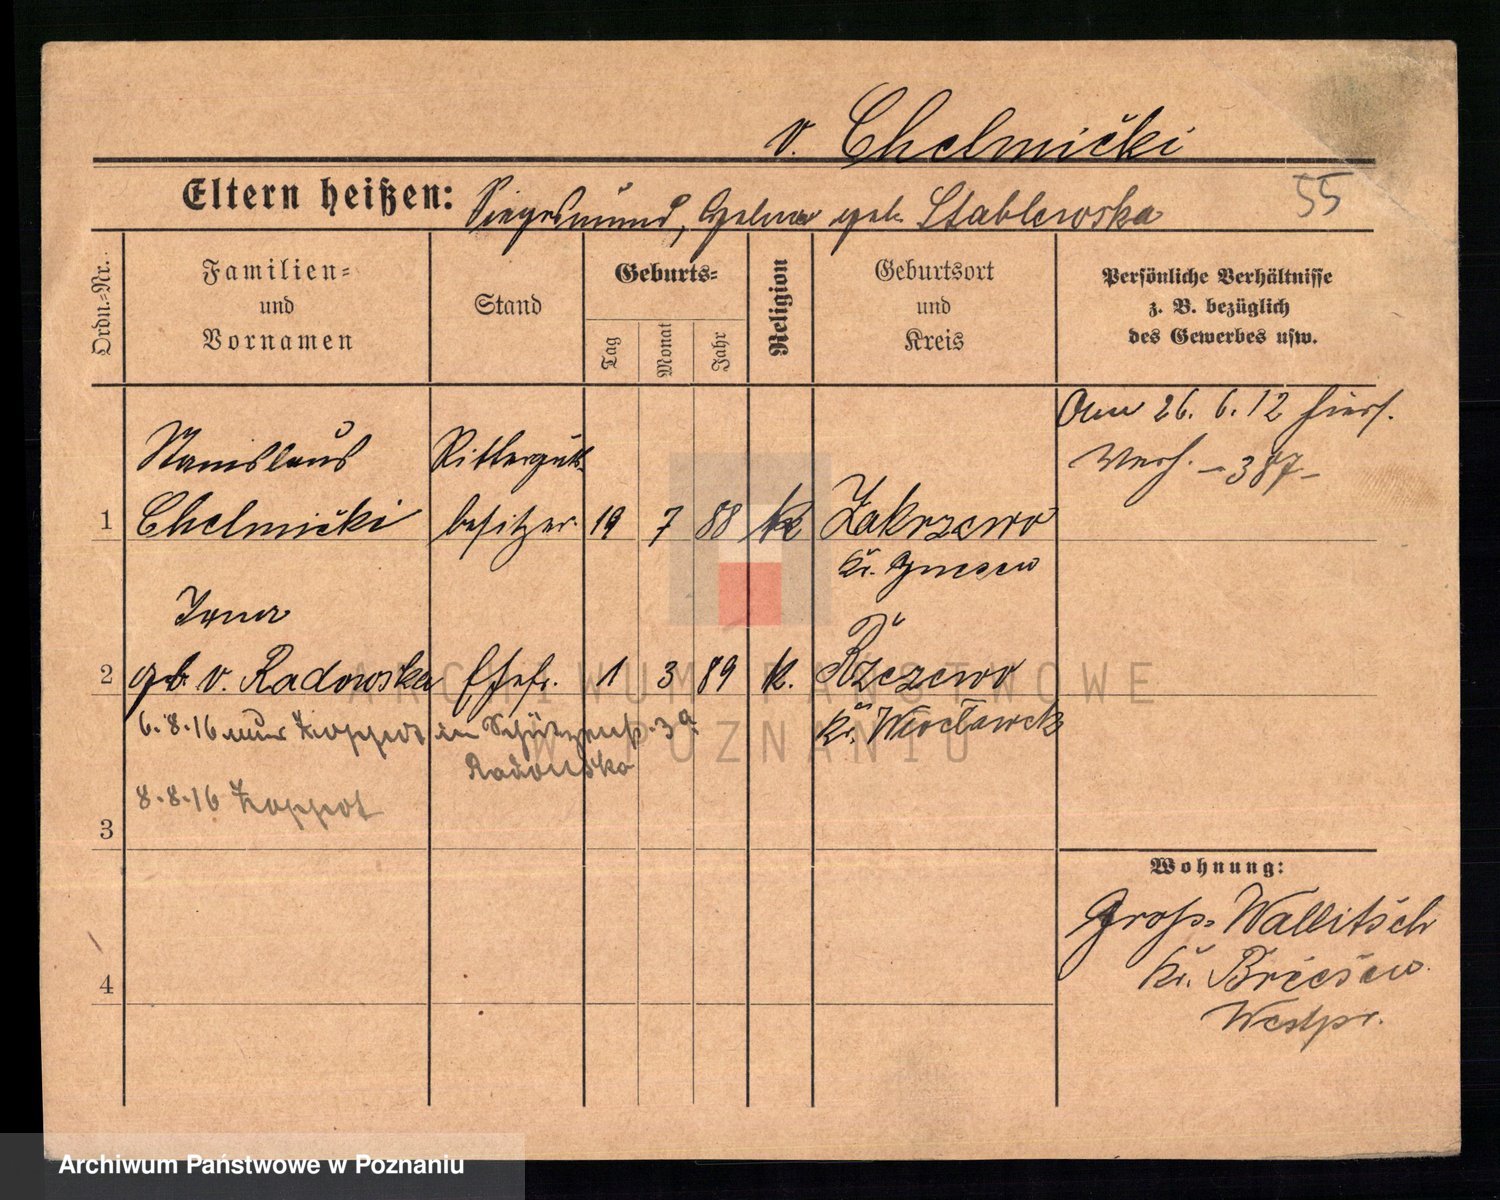 v. Chelmicki
55
Eltern heißen: Siegesmund, Helene geb. Stablewska
Ordn.-Nr.
Familien-
und
Vornamen
Stand
Geburts-
Tag
Monat
Jahr
Religion
Geburtsort
und
Kreis
Persönliche Verhältnisse
z. B. bezüglich
des Gewerbes usw.
Am 26. 6. 12 hier
- 387 -
Stanislaus Ritterguts-
1 Chelmicki besitzer 19 7 88 k Zakrzewo
Kr. Gnesen
Irena
2 geb. v. Radowska Ehefr. 1 3 89 k. Rzezewo
Kr. Wloclawek
6.8.16 nur Zoppot in 3a
Radowska
8.8.16 Zoppot
3
4
Wohnung:
Gross-Wallitsch
Kr. Briesen
Westpr.
ARCHIWUM PAŃSTWOWE
W POZNANIU
Archiwum Państwowe w Poznaniu